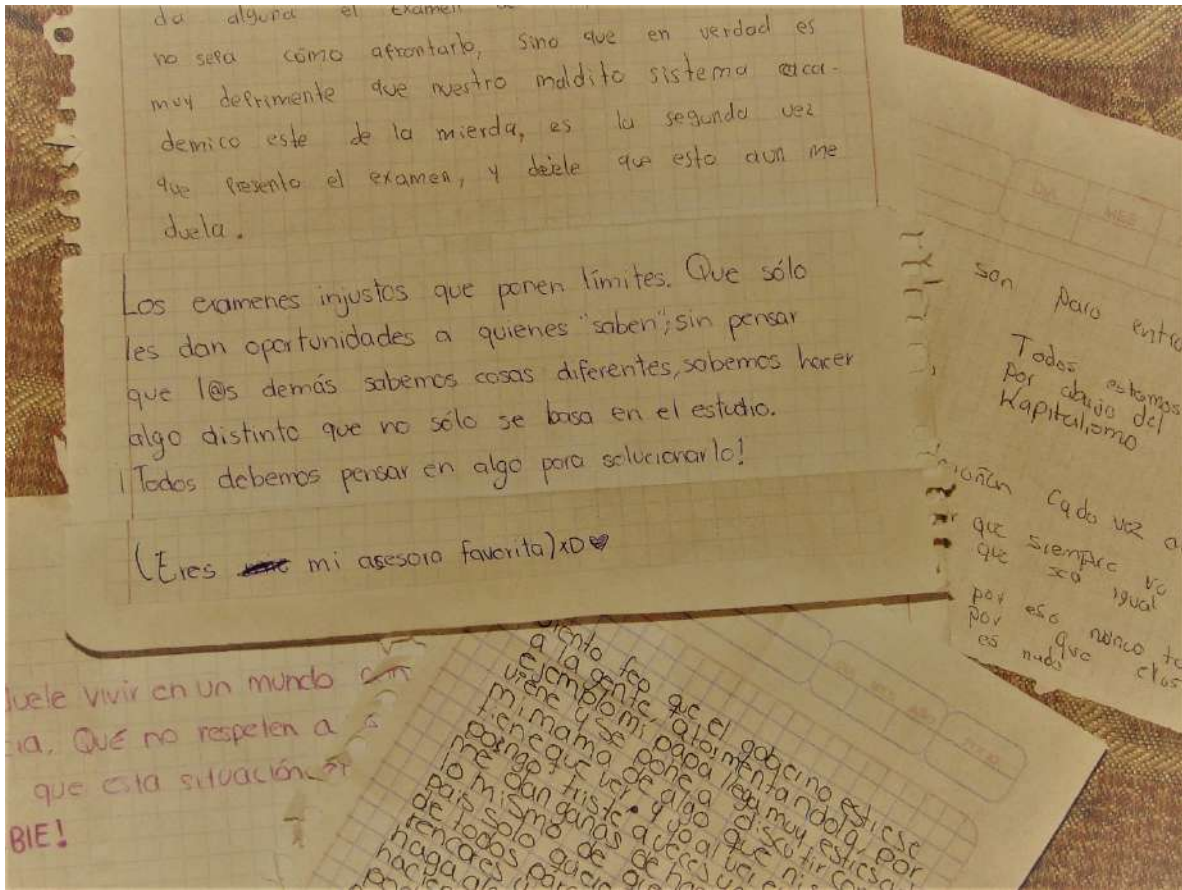 da alguna el examen
no sera como afrontarlo, sino que en verdad es
muy deprimente que nuestro maldito sistema aca-
demico este de la mierda, es la segunda vez
que presento el examen, y dejele que esto aun me
duela.
Los examenes injustos que ponen límites. Que sólo
les dan oportunidades a quienes "saben"; sin pensar
que l@s demás sabemos cosas diferentes, sabemos hacer
algo distinto que no sólo se basa en el estudio.
¡Todos debemos pensar en algo para solucionarlo!
(Eres mi asesora favorita) xD ♥
DIA MES
son para
Todos estamos
por abajo del
Kapitalismo
cada vez
que siempre va
que sea igual
por eso nunca
por que ellos
es nada
duele vivir en un mundo
ia. QUE no respeten a
que esta situación
BIE!
feo que el gobierno estrese
a la gente, atormentandola, por
ejemplo mi papá llega muy estresa
viene y se pone a discutir con
mi mamá de algo que ni
tiene que ver. y yo al ver
pongo triste aveces
me dan ganas de
lo mismo de
pais solo quiero
de todos para
rencores
haga